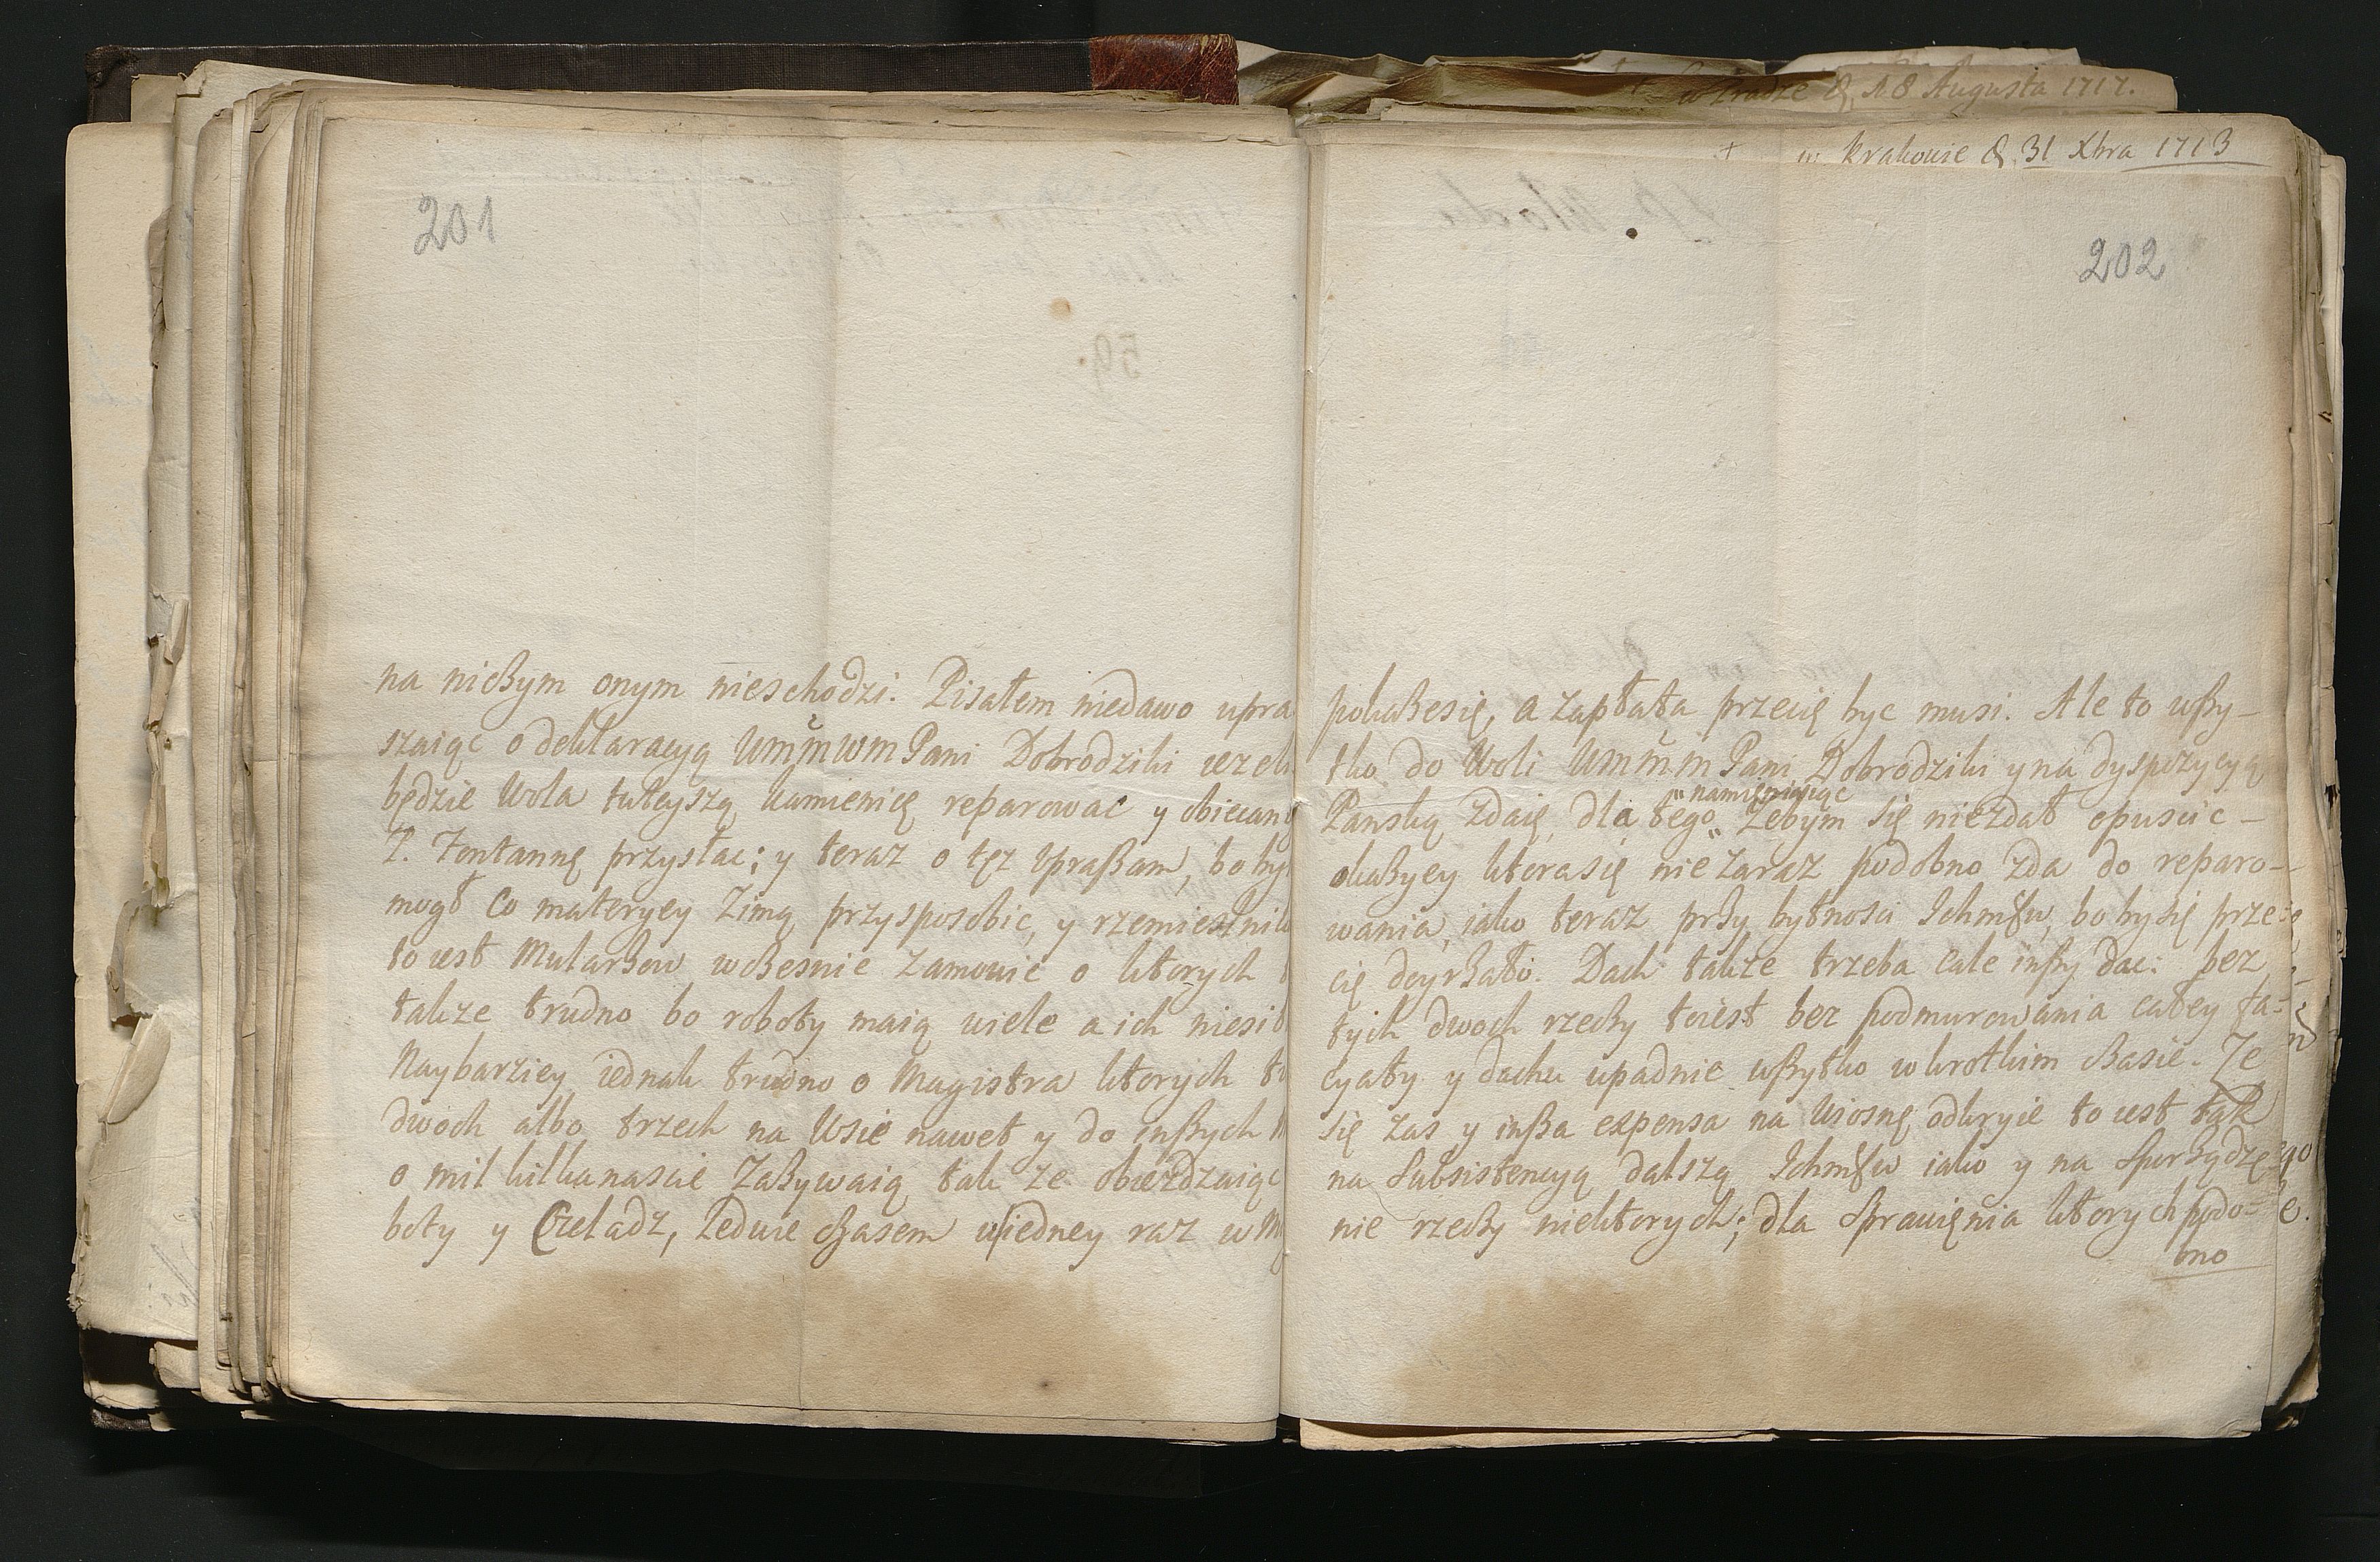 201
na niczym onym nieschodzi. Pisałem niedawo upra
szaiąc o deklaracyą WmmWm Pani Dobrodziki iezeli
będzie Wola tuteyszą kamienicę reparowac y obiecaną
P. Fontannę przysłac; y teraz o tęz upraszam, bo by
mogł co materyey Zimą przysposobic, y rzemiesłnik
to iest Mularzow wczesnie zamowic o ktorych
takze trudno bo roboty maią wiele a ich niesił
Naybarziey iednak trudno o Magistra ktorych
dwoch albo trzech na Wsie nawet y do inszych
o mil kilkanascie Zazywaią tak ze obiezdzaiąc
boty y Czeladz, ledwie czasem wiedney raz w
w Pradze D. 18 Augusta 1717.
+ w Krakowie D. 31 Xbra 1713
202
pokazesię, a zapłata przecię byc musi. Ale to wszy-
tko do Woli Wmmm Pani Dobrodziki y na dyspozycyą
Panską zdaię, dla tego „ namięniaiąc „ Zebym się niezdał opuscic -
okazyey ktorasię nie zaraz podobno zda do reparo-
wania, iako teraz przy bytnosci Ichmsw, bo by się prze
cię doyrzało. Dach takze trzeba cale inszy dac: bez
tych dwoch rzeczy toiest bez podmurowania całey fa-
cyaty y dachu upadnie wszytko w krotkim czasie. Ze
się zas y insza expensa na Wiosnę odkryie to iest tak
na Subsistencyą dalszą Ichmsw iako y na Sporządzę
nie rzeczy niektorych; dla Sprawięnia ktorych podo-
bno